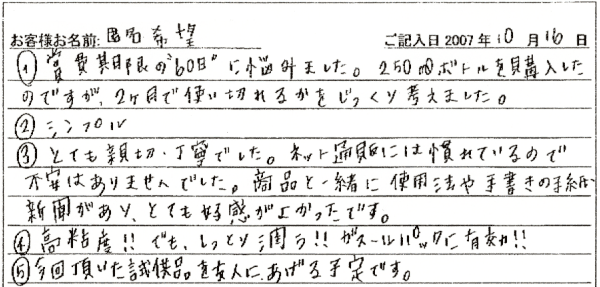 お客様お名前: 匿名希望 ご記入日 2007年10月16日
① 賞費期限の"60日"に悩みました。250mlボトルを購入した
のですが、2ヶ月で使い切れるかをじっくり考えました。
② シンプル
③ とても親切・丁寧でした。ネット通販には慣れているので
不安はありませんでした。商品と一緒に使用法や手書きの手紙
新聞があり、とても好感がよかったです。
④ 高粘度!! でも、しっとり潤う!! ガスールパックに有効!!
⑤ 今回頂いた試供品を友人にあげる予定です。